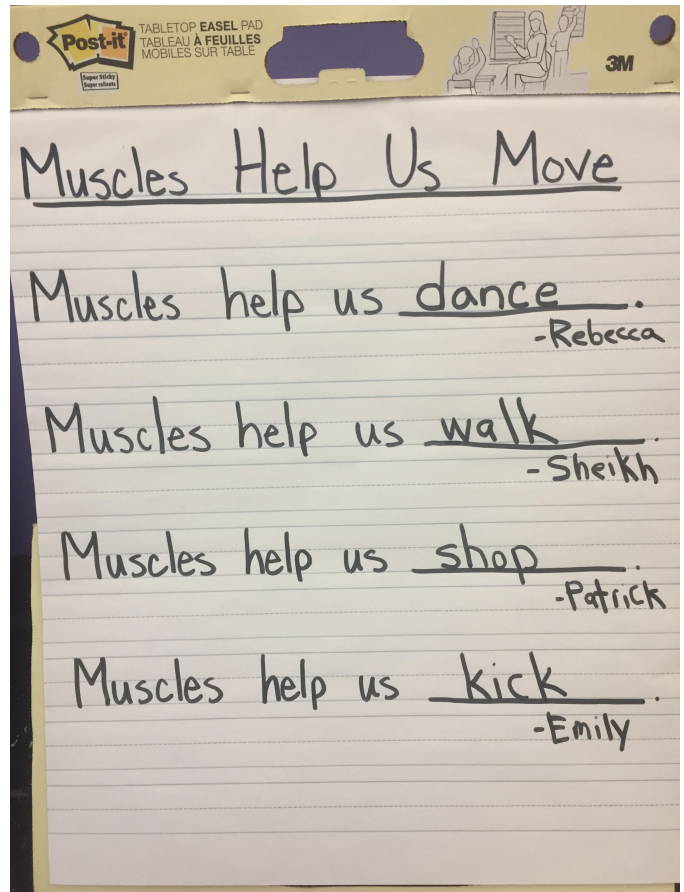 Post-it
Super Sticky
Super collants
TABLETOP EASEL PAD
TABLEAU À FEUILLES
MOBILES SUR TABLE
3M
Muscles Help Us Move
Muscles help us dance.
-Rebecca
Muscles help us walk.
-Sheikh
Muscles help us shop.
-Patrick
Muscles help us kick.
-Emily